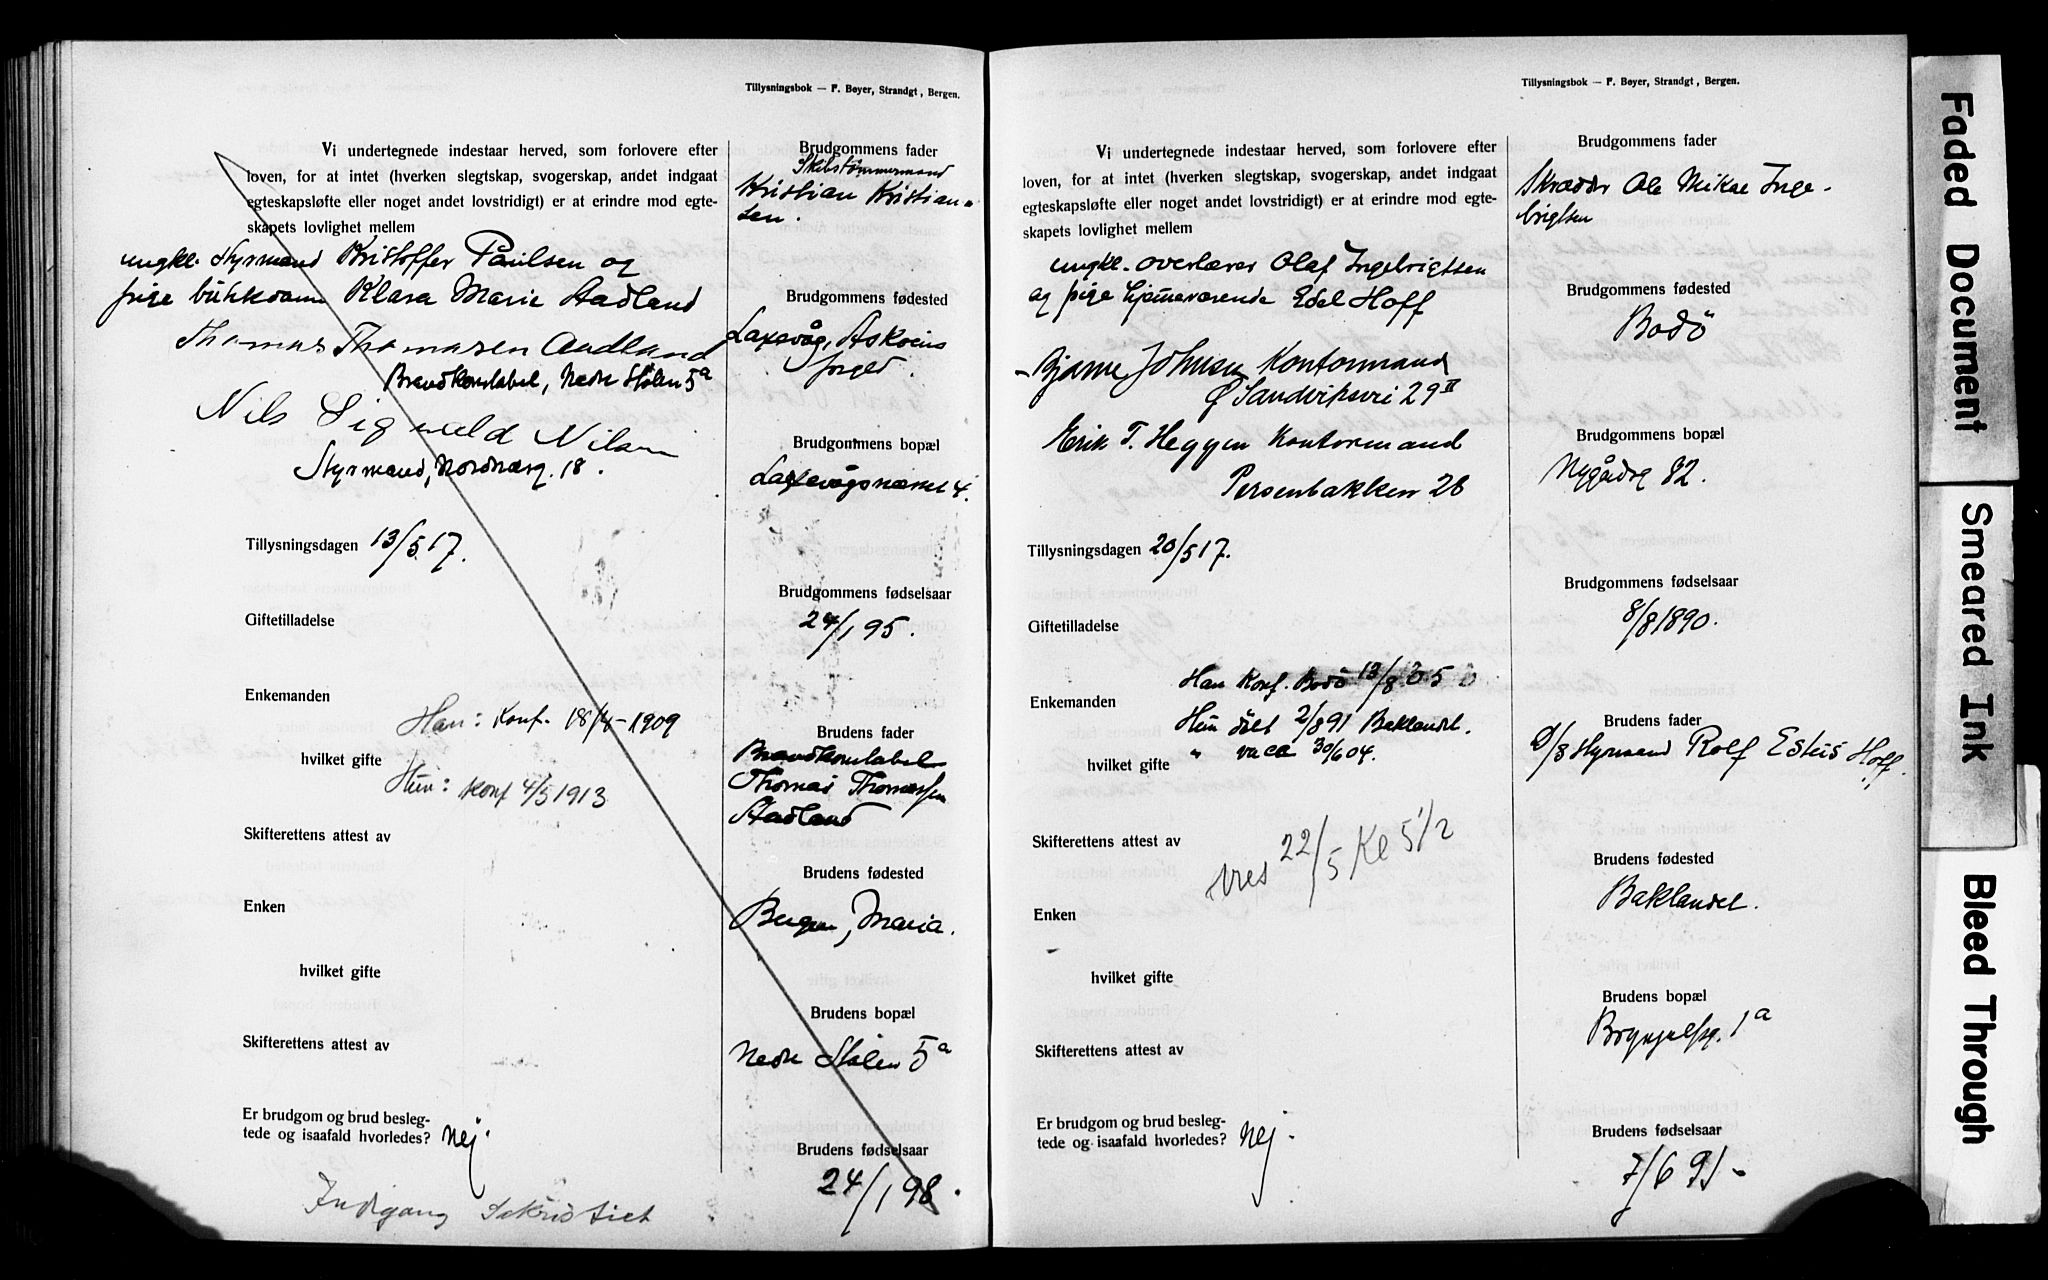 Tillysningsbok — F. Bøyer, Strandgt, Bergen.
Vi undertegnede indestaar herved, som forlovere efter
loven, for at intet (hverken slegtskap, svogerskap, andet indgaat
egteskapsløfte eller noget andet lovstridigt) er at erindre mod egte-
skapets lovlighet mellem
ungkl. Styrmand Kristoffer Paulsen og
pige butikdame Klara Marie Aadland
Thomas Thomasen Aadland
Brandkonstabel, Nedre Stølen 5a
Nils Sigvald Nilsen
Styrmand, Nordnesg. 18.
Tillysningsdagen 13/5 17.
Giftetilladelse
Enkemanden
Han: Konf. 18/4-1909
hvilket gifte
Hun: Konf 4/5 1913
Skifterettens attest av
Enken
hvilket gifte
Skifterettens attest av
Er brudgom og brud besleg-
tede og isaafald hvorledes? Nej.
Indgang Sakristiet
Brudgommens fader
Skibstømmermand
Kristian Kristian-
sen.
Brudgommens fødested
Laxevåg, Askøens
Brudgommens bopæl
Laxevågsneset 4.
Brudgommens fødselsaar
24/1 95.
Brudens fader
Brandkonstabel
Thomas Thomassen
Aadland
Brudens fødested
Bergen, Maria.
Brudens bopæl
Nedre Stølen 5a
Brudens fødselsaar
24/1 98.
Tillysningsbok — F. Bøyer, Strandgt, Bergen.
Vi undertegnede indestaar herved, som forlovere efter
loven, for at intet (hverken slegtskap, svogerskap, andet indgaat
egteskapsløfte eller noget andet lovstridigt) er at erindre mod egte-
skapets lovlighet mellem
ungkl. overlærer Olaf Ingebrigtsen
og pige hjemmeværende Edel Hoff
Bjarne Johnsen Kontormand
Ø Sandviksvei 29 II
Erik T. Heggen Kontormand
Persenbakken 28
Tillysningsdagen 20/5 17.
Giftetilladelse
Han Konf. Bodö 13/8 05
Enkemanden
Hun döbt 2/8 91 Baklandet.
hvilket gifte " vacc 30/6 04.
Skifterettens attest av
22/5 Kl 5 1/2
Enken
hvilket gifte
Skifterettens attest av
Er brudgom og brud besleg-
tede og isaafald hvorledes? Nej.
Brudgommens fader
Skrædder Ole Mikae Inge-
brigtsen
Brudgommens fødested
Bodö
Brudgommens bopæl
Nygårdsg 82.
Brudgommens fødselsaar
8/8 1890.
Brudens fader
Styrmand Rolf Hoff.
Brudens fødested
Baklandet.
Brudens bopæl
1a
Brudens fødselsaar
7/6 91 -
Faded Document
Smeared Ink
Bleed Through